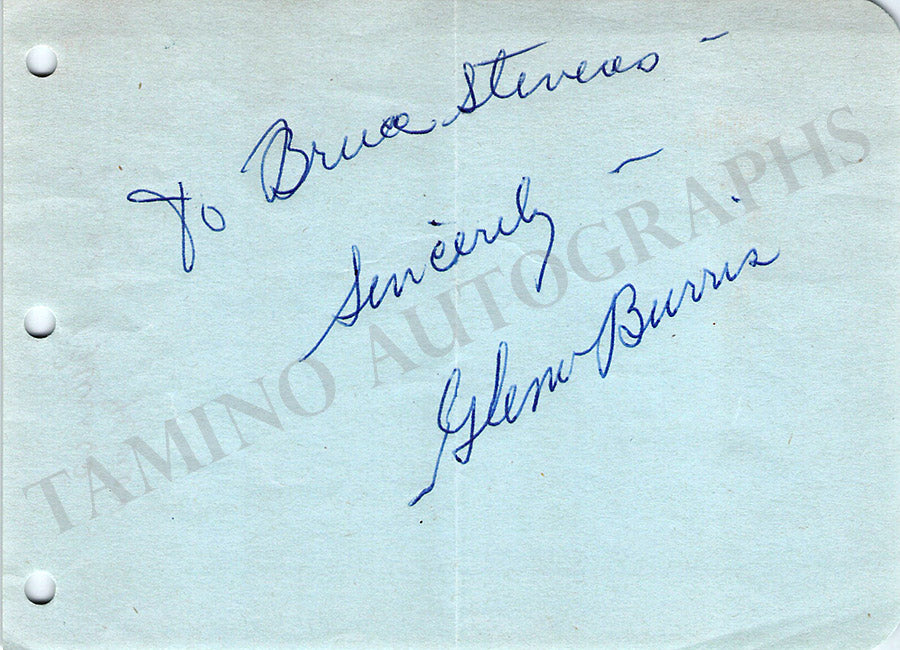 To Bruce Stevens -
Sincerely -
Glenn Burris
TAMINO AUTOGRAPHS